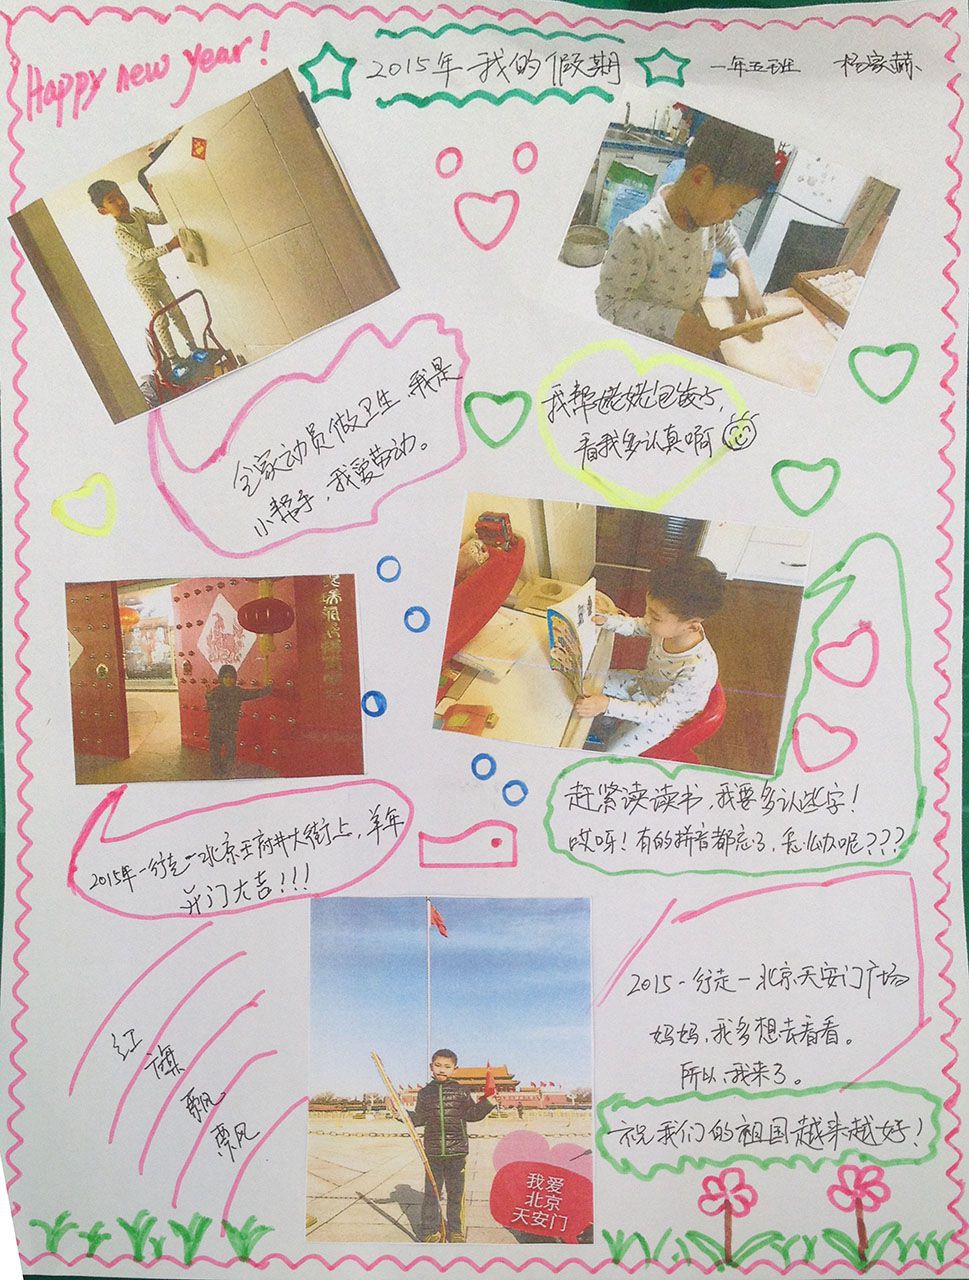 Happy new year!
2015年我的假期
一年五班 杨家赫
全家动员做卫生,我是
小帮手,我爱劳动。
我帮姥姥包饺子,
看我多认真啊
赶紧读读书,我要多认些字!
哎呀!有的拼音都忘了,怎么办呢???
2015年-行走-北京王府井大街上,羊年
开门大吉!!!
红旗飘飘
2015-行走-北京天安门广场
妈妈,我多想去看看。
所以,我来了。
祝我们的祖国越来越好!
我爱
北京
天安门